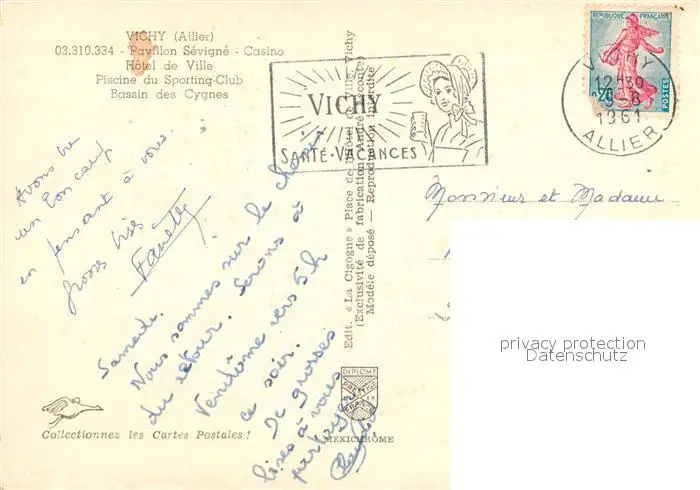 VICHY (Allier)
03.310.334 - Pavillon Sévigné - Casino
Hôtel de Ville
Piscine du Sporting-Club
Bassin des Cygnes
VICHY
SANTÉ - VACANCES
REPUBLIQUE FRANÇAISE
0,20
POSTES
VICHY
12H30
1961
ALLIER
Monsieur et Madame
Samedi.
Nous sommes sur le chemin
du retour. Serons à
Vendôme vers 5h
ce soir.
De grosses
bises à vous
partager
un bon coup
en pensant à vous.
Grosses bises
Edit. « La Cigogne » Place de l'Hôtel de Ville, Vichy
(Exclusivité de fabrication André Leconte)
Modèle déposé — Reproduction interdite
DIPLOME
PRESTIGE
DE LA
FRANCE
MEXICHROME
Collectionnez les Cartes Postales !
privacy protection
Datenschutz